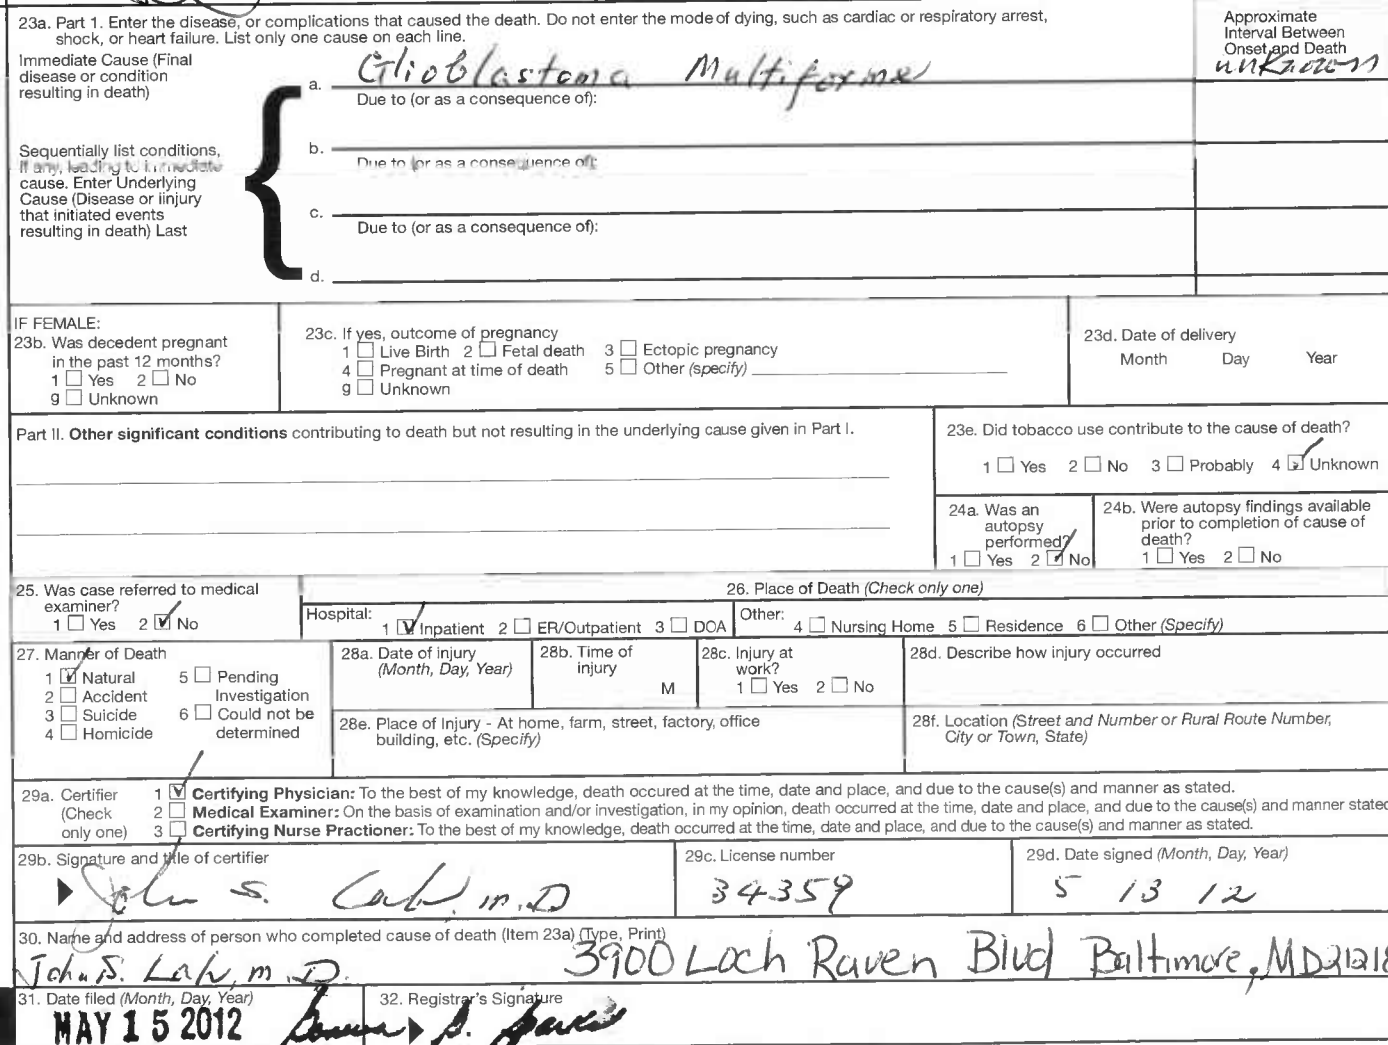 23a. Part 1. Enter the disease, or complications that caused the death. Do not enter the mode of dying, such as cardiac or respiratory arrest,
shock, or heart failure. List only one cause on each line.
Approximate
Interval Between
Onset and Death
unknown
Immediate Cause (Final
disease or condition
resulting in death)
a. Glioblastoma Multiforme
Due to (or as a consequence of):
Sequentially list conditions,
if any, leading to immediate
cause. Enter Underlying
Cause (Disease or iinjury
that initiated events
resulting in death) Last
b.
Due to (or as a consequence of):
c.
Due to (or as a consequence of):
d.
IF FEMALE:
23b. Was decedent pregnant
in the past 12 months?
1 ☐ Yes 2 ☐ No
9 ☐ Unknown
23c. If yes, outcome of pregnancy
1 ☐ Live Birth 2 ☐ Fetal death 3 ☐ Ectopic pregnancy
4 ☐ Pregnant at time of death 5 ☐ Other (specify)
9 ☐ Unknown
23d. Date of delivery
Month Day Year
Part II. Other significant conditions contributing to death but not resulting in the underlying cause given in Part I.
23e. Did tobacco use contribute to the cause of death?
1 ☐ Yes 2 ☐ No 3 ☐ Probably 4 ☑ Unknown
24a. Was an
autopsy
performed?
1 ☐ Yes 2 ☑ No
24b. Were autopsy findings available
prior to completion of cause of
death?
1 ☐ Yes 2 ☐ No
25. Was case referred to medical
examiner?
1 ☐ Yes 2 ☑ No
26. Place of Death (Check only one)
Hospital: 1 ☑ Inpatient 2 ☐ ER/Outpatient 3 ☐ DOA
Other: 4 ☐ Nursing Home 5 ☐ Residence 6 ☐ Other (Specify)
27. Manner of Death
1 ☑ Natural 5 ☐ Pending
2 ☐ Accident Investigation
3 ☐ Suicide 6 ☐ Could not be
4 ☐ Homicide determined
28a. Date of injury
(Month, Day, Year)
28b. Time of
injury
M
28c. Injury at
work?
1 ☐ Yes 2 ☐ No
28d. Describe how injury occurred
28e. Place of Injury - At home, farm, street, factory, office
building, etc. (Specify)
28f. Location (Street and Number or Rural Route Number,
City or Town, State)
29a. Certifier
(Check
only one)
1 ☑ Certifying Physician: To the best of my knowledge, death occured at the time, date and place, and due to the cause(s) and manner as stated.
2 ☐ Medical Examiner: On the basis of examination and/or investigation, in my opinion, death occurred at the time, date and place, and due to the cause(s) and manner stated
3 ☐ Certifying Nurse Practioner: To the best of my knowledge, death occurred at the time, date and place, and due to the cause(s) and manner as stated.
29b. Signature and title of certifier
John S. M.D
29c. License number
34359
29d. Date signed (Month, Day, Year)
5 13 12
30. Name and address of person who completed cause of death (Item 23a) (Type, Print)
John S. M.D. 3900 Loch Raven Blvd Baltimore, MD 21218
31. Date filed (Month, Day, Year)
MAY 15 2012
32. Registrar's Signature